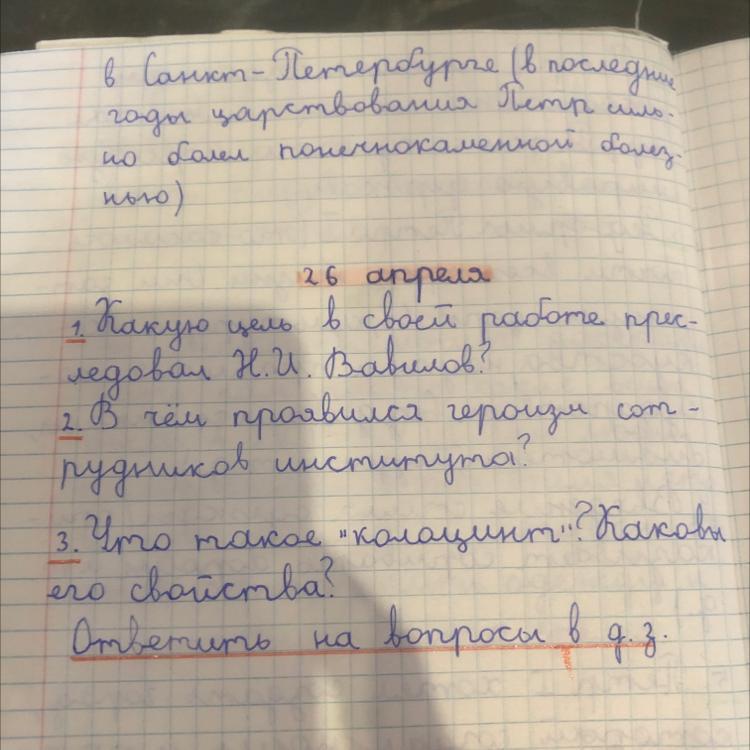 в Санкт-Петербурге (в последние
годы царствования Петр силь-
но болел почечнокаменной болез-
нью)
26 апреля
1. Какую цель в своей работе прес-
ледовал Н.И. Вавилов?
2. В чём проявился героизм сот-
рудников института?
3. Что такое "колоцинт"? Каковы
его свойства?
Ответить на вопросы в д.з.